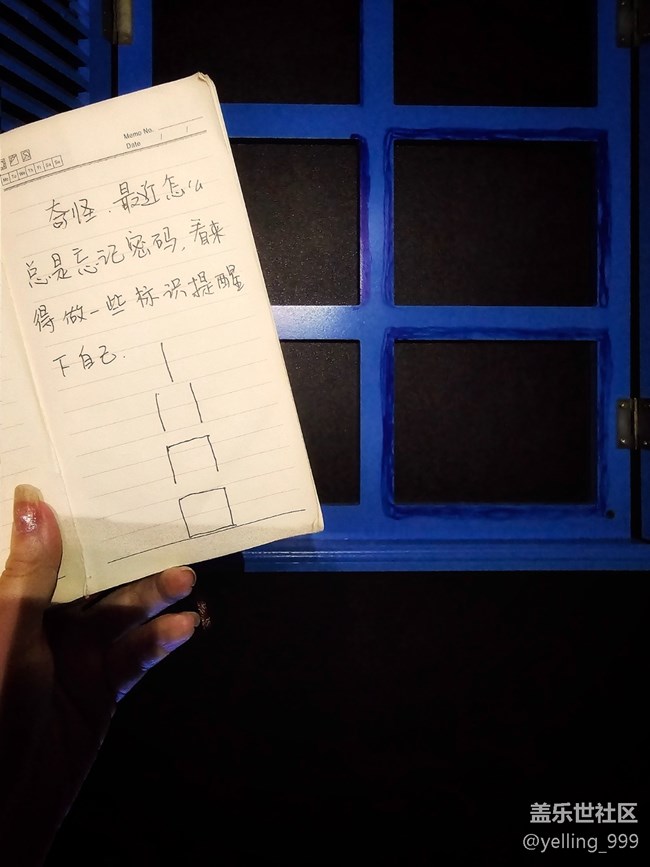 Memo No.
Date / /
Mo Tu We Th Fr Sa Su
奇怪.最近怎么
总是忘记密码,看来
得做一些标识提醒
下自己.
盖乐世社区
@yelling_999